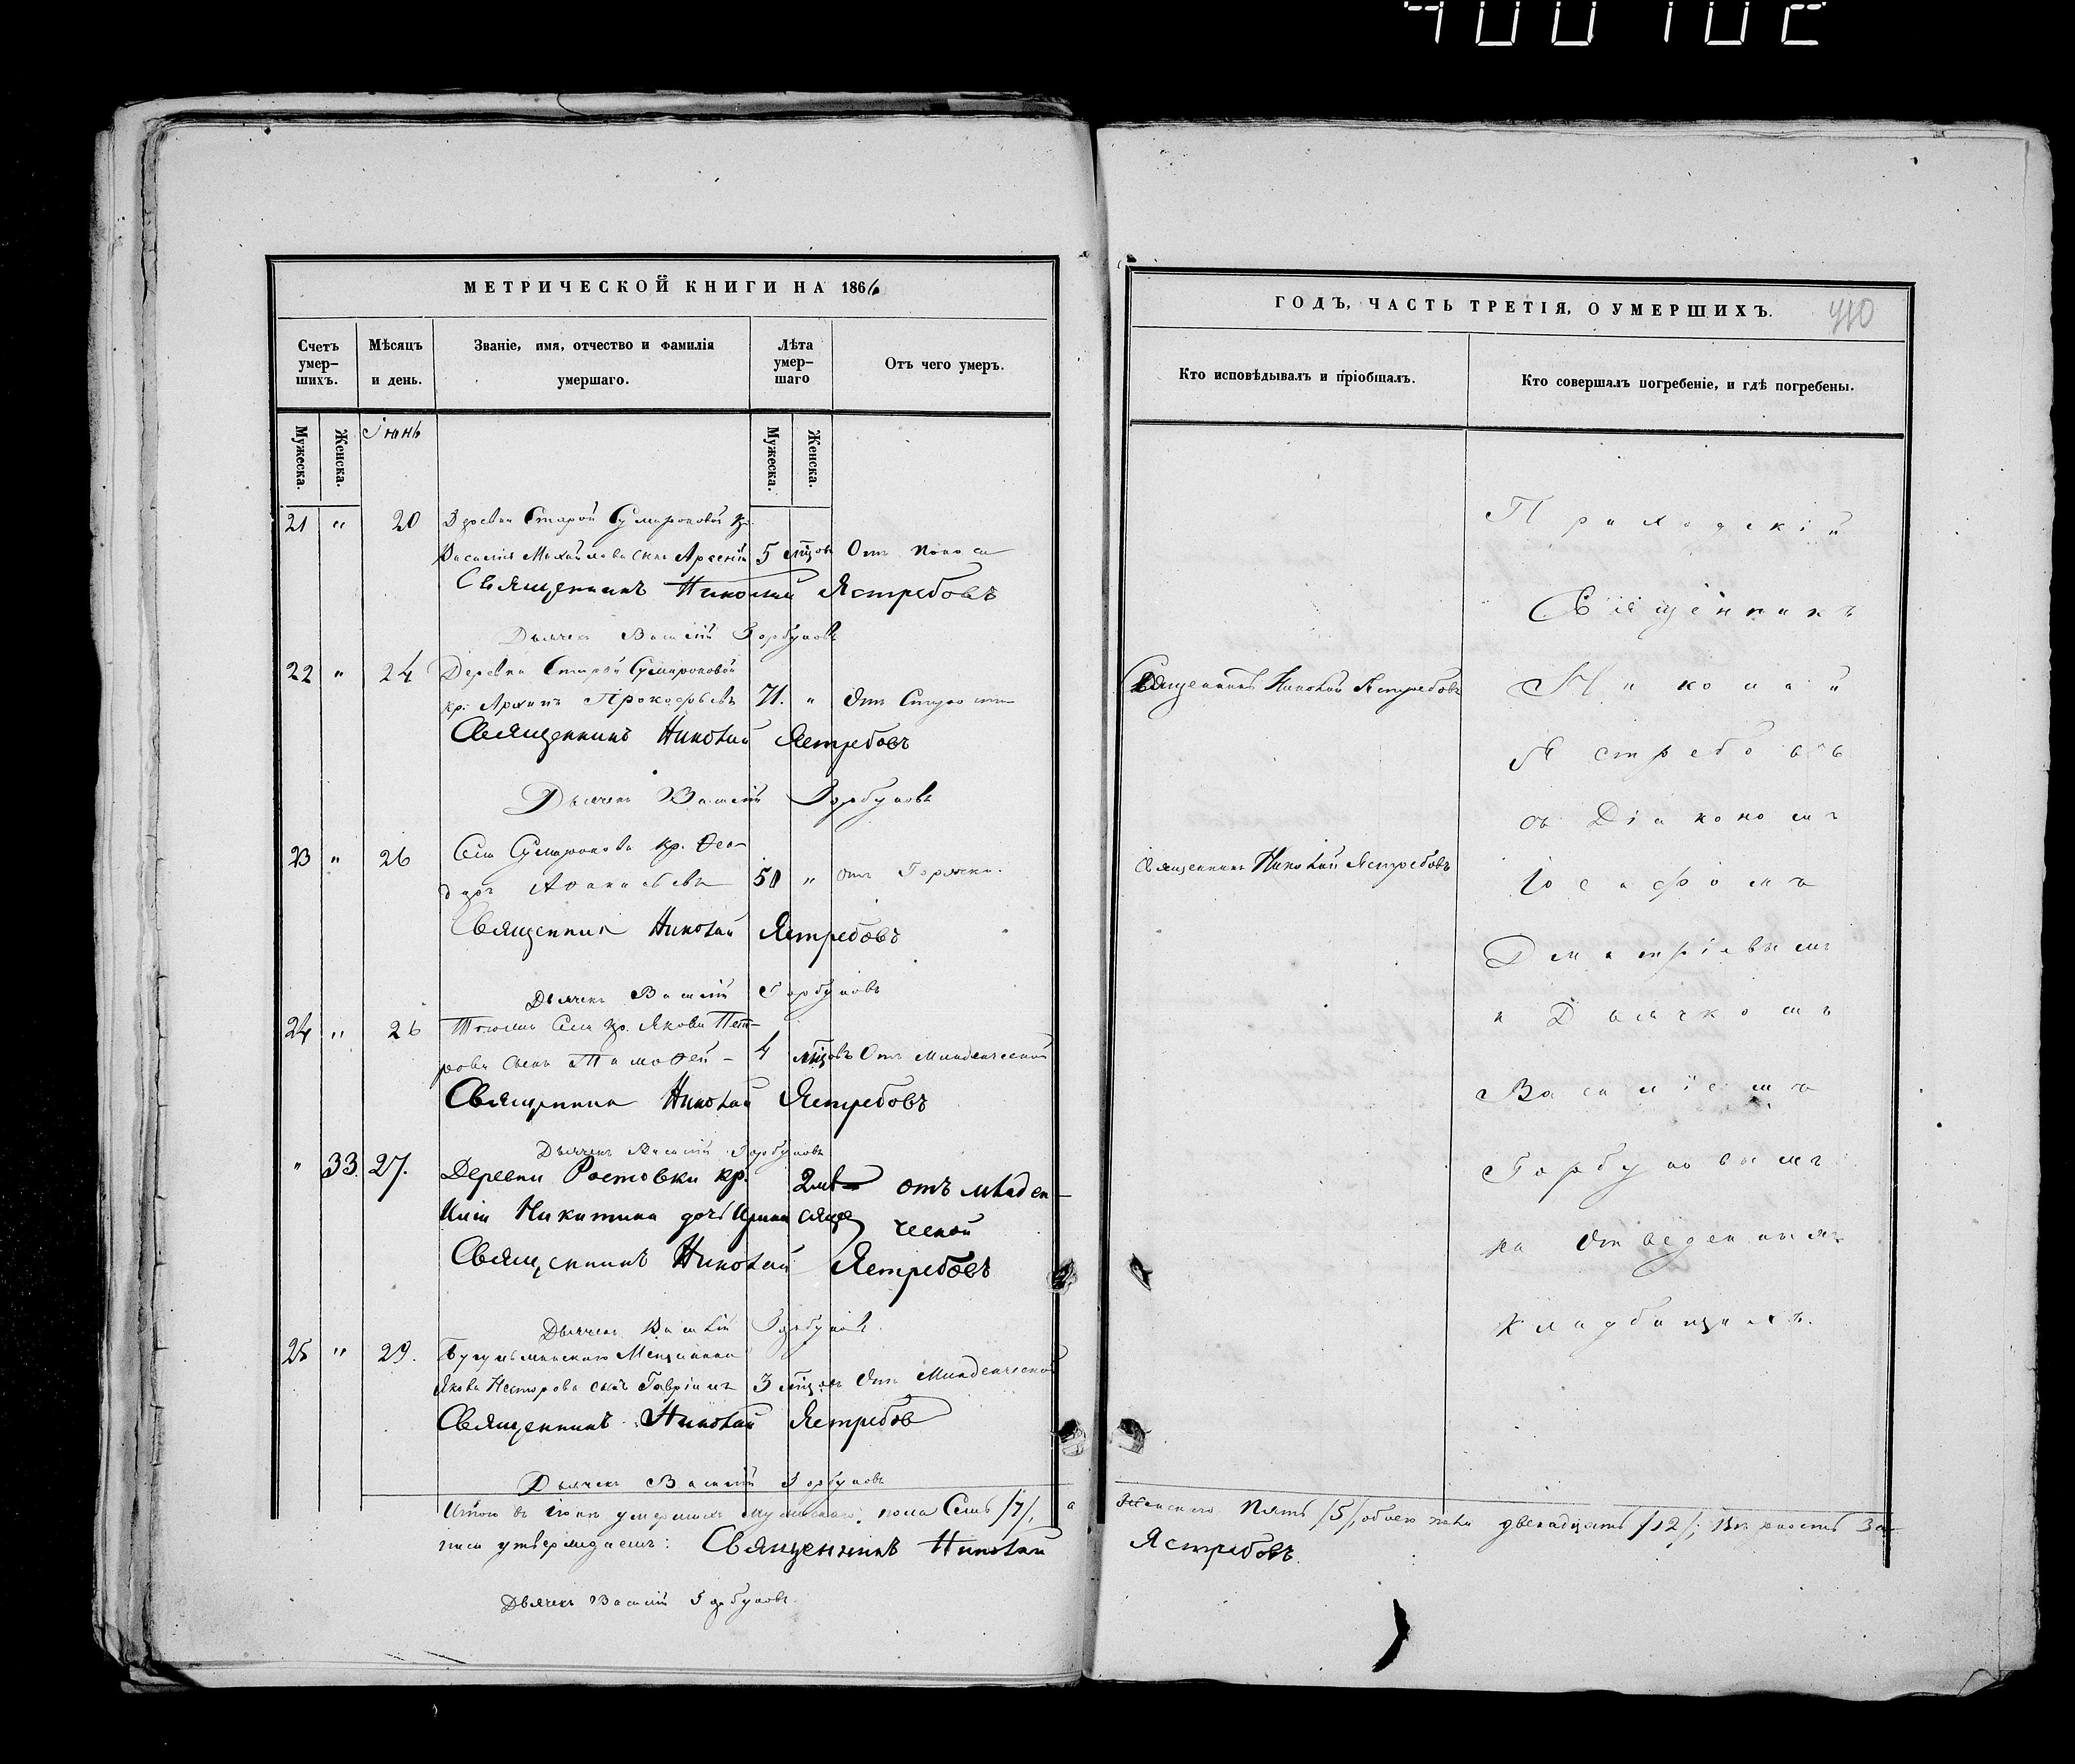 400102
МЕТРИЧЕСКОЙ КНИГИ НА 1866
Счетъ умер-шихъ.
Мѣсяцъ и день.
Званіе, имя, отчество и фамилія умершаго.
Лѣта умер-шаго
Отъ чего умеръ.
Мужеска.
Женска.
Іюнь
Мужеска.
Женска.
21 " 20 Деревни Старой Сумароковой кр.
Василія Михайлова сынъ Арсеній 5 мцовъ Отъ поноса
Священникъ Николай Ястребовъ
Дьячекъ Василій Горбуновъ
22 " 24 Деревни Старой Сумароковой
кр. Архипъ Прокофьевъ 71. " Отъ Старости
Священникъ Николай Ястребовъ
Дьячекъ Василій Горбуновъ
23 " 26 Села Сумарокова кр. Ѳео-
доръ Аѳанасьевъ 50 " отъ Горячки.
Священникъ Николай Ястребовъ
Дьячекъ Василій Горбуновъ
24 " 26 Тогожъ Села кр. Якова Пет-
рова сынъ Тимоѳей - 4 мцовъ Отъ младенческой
Священникъ Николай Ястребовъ
Дьячекъ Василій Горбуновъ
" 33. 27. Деревни Ростовки кр. 2 мѣ- отъ младен-
Никитина дочь Ирина сяца ческой
Священникъ Николай Ястребовъ
Дьячекъ Василій Горбуновъ
25 " 29. Бугульминскаго Мещанина
Якова Нестерова сынъ Гавріилъ 3 мцовъ Отъ Младенческой
Священникъ Николай Ястребов
Дьячекъ Василій Горбуновъ
Итого въ Іюнѣ умершихъ мужескаго пола Семь /7/, а
писи утверждаемъ: Священникъ Николай
Дьячекъ Василій Горбуновъ.
ГОДЪ, ЧАСТЬ ТРЕТІЯ, О УМЕРШИХЪ.
410
Кто исповѣдывалъ и пріобщалъ.
Кто совершалъ погребеніе, и гдѣ погребены.
Священникъ Николай Ястребовъ
Священникъ Николай Ястребовъ
Приходскій
Священникъ
Николай
Ястребовъ
съ Діакономъ
Іосафомъ
Дмитріевымъ
и Дьячкомъ
Василіемъ
Горбуновымъ
на Отведенныхъ
Кладбищахъ.
Женскаго Пять /5/, обоего пола двенадцать /12/; Вѣрность За-
Ястребовъ.